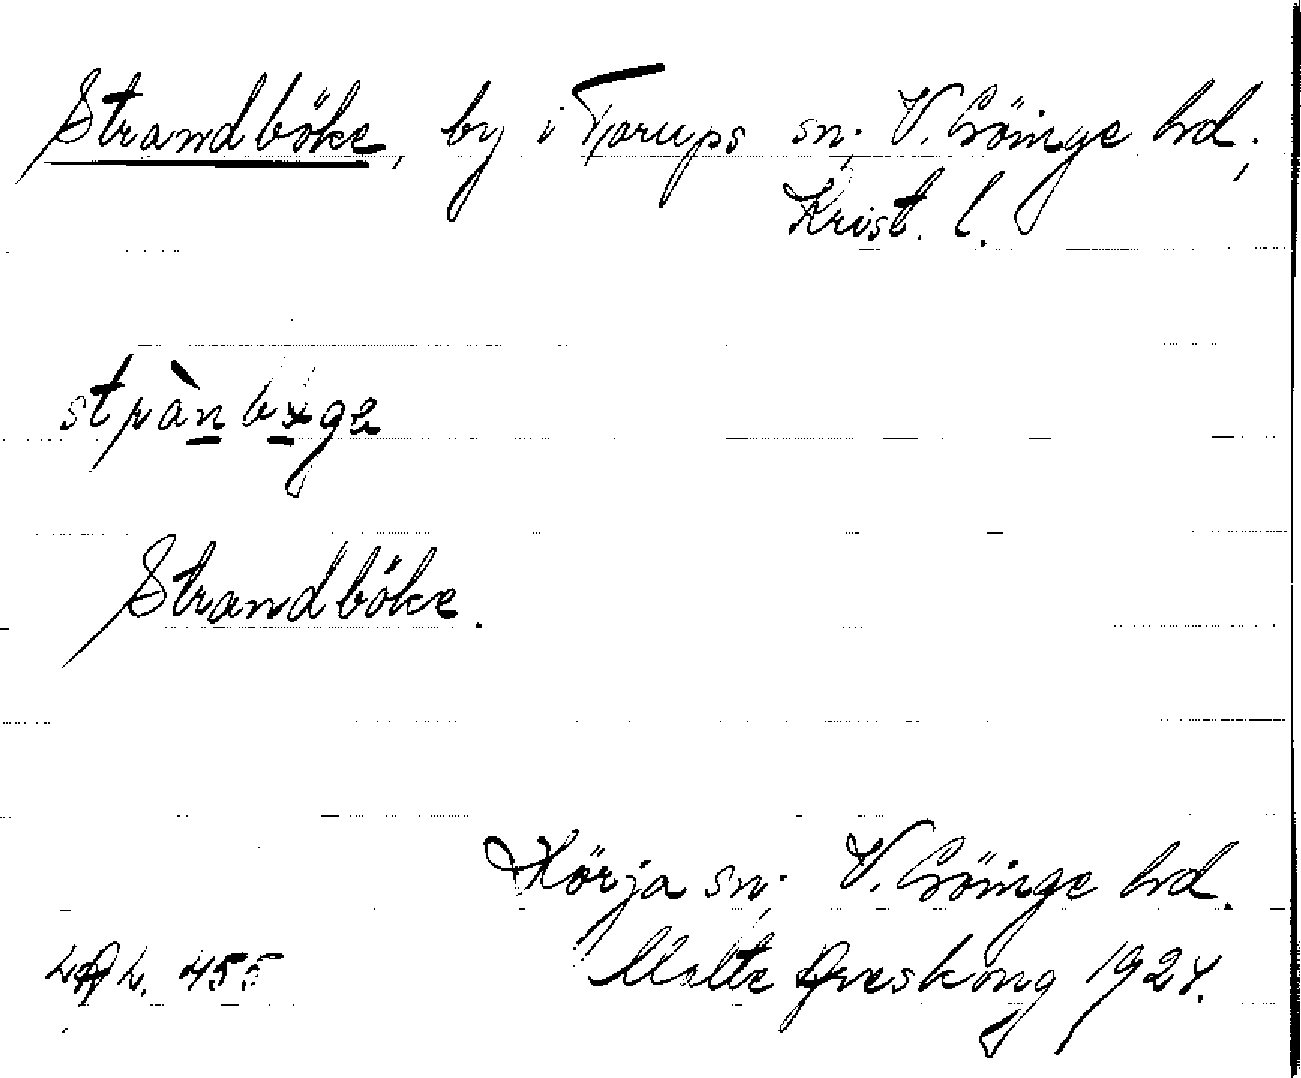 Strandböke, by i Farups sn; V. Göinge hd;
Krist. l.
Strandböke.
Hörja sn; V. Göinge hd.
Malte Areskoug 1924.
LAL. 455